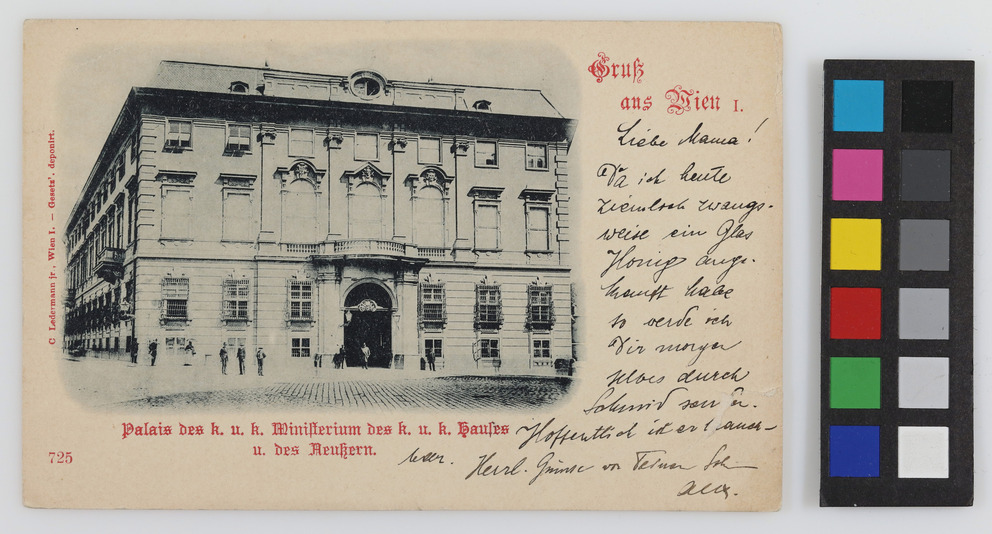 Gruß
aus Wien I.
C Ledermann jr., Wien I. – Gesetz'. deponirt.
Liebe Mama!
Da ich heute
ziemlich zwangs-
weise ein Glas
Honig ange-
kauft habe
so werde ich
Dir morgen
selbes durch
Schmid senden.
Hoffentlich ist er brauch-
bar. Herzl. Grüsse von Deinem
Palais des k. u. k. Ministerium des k. u. k. Hauses
u. des Aeußern.
725